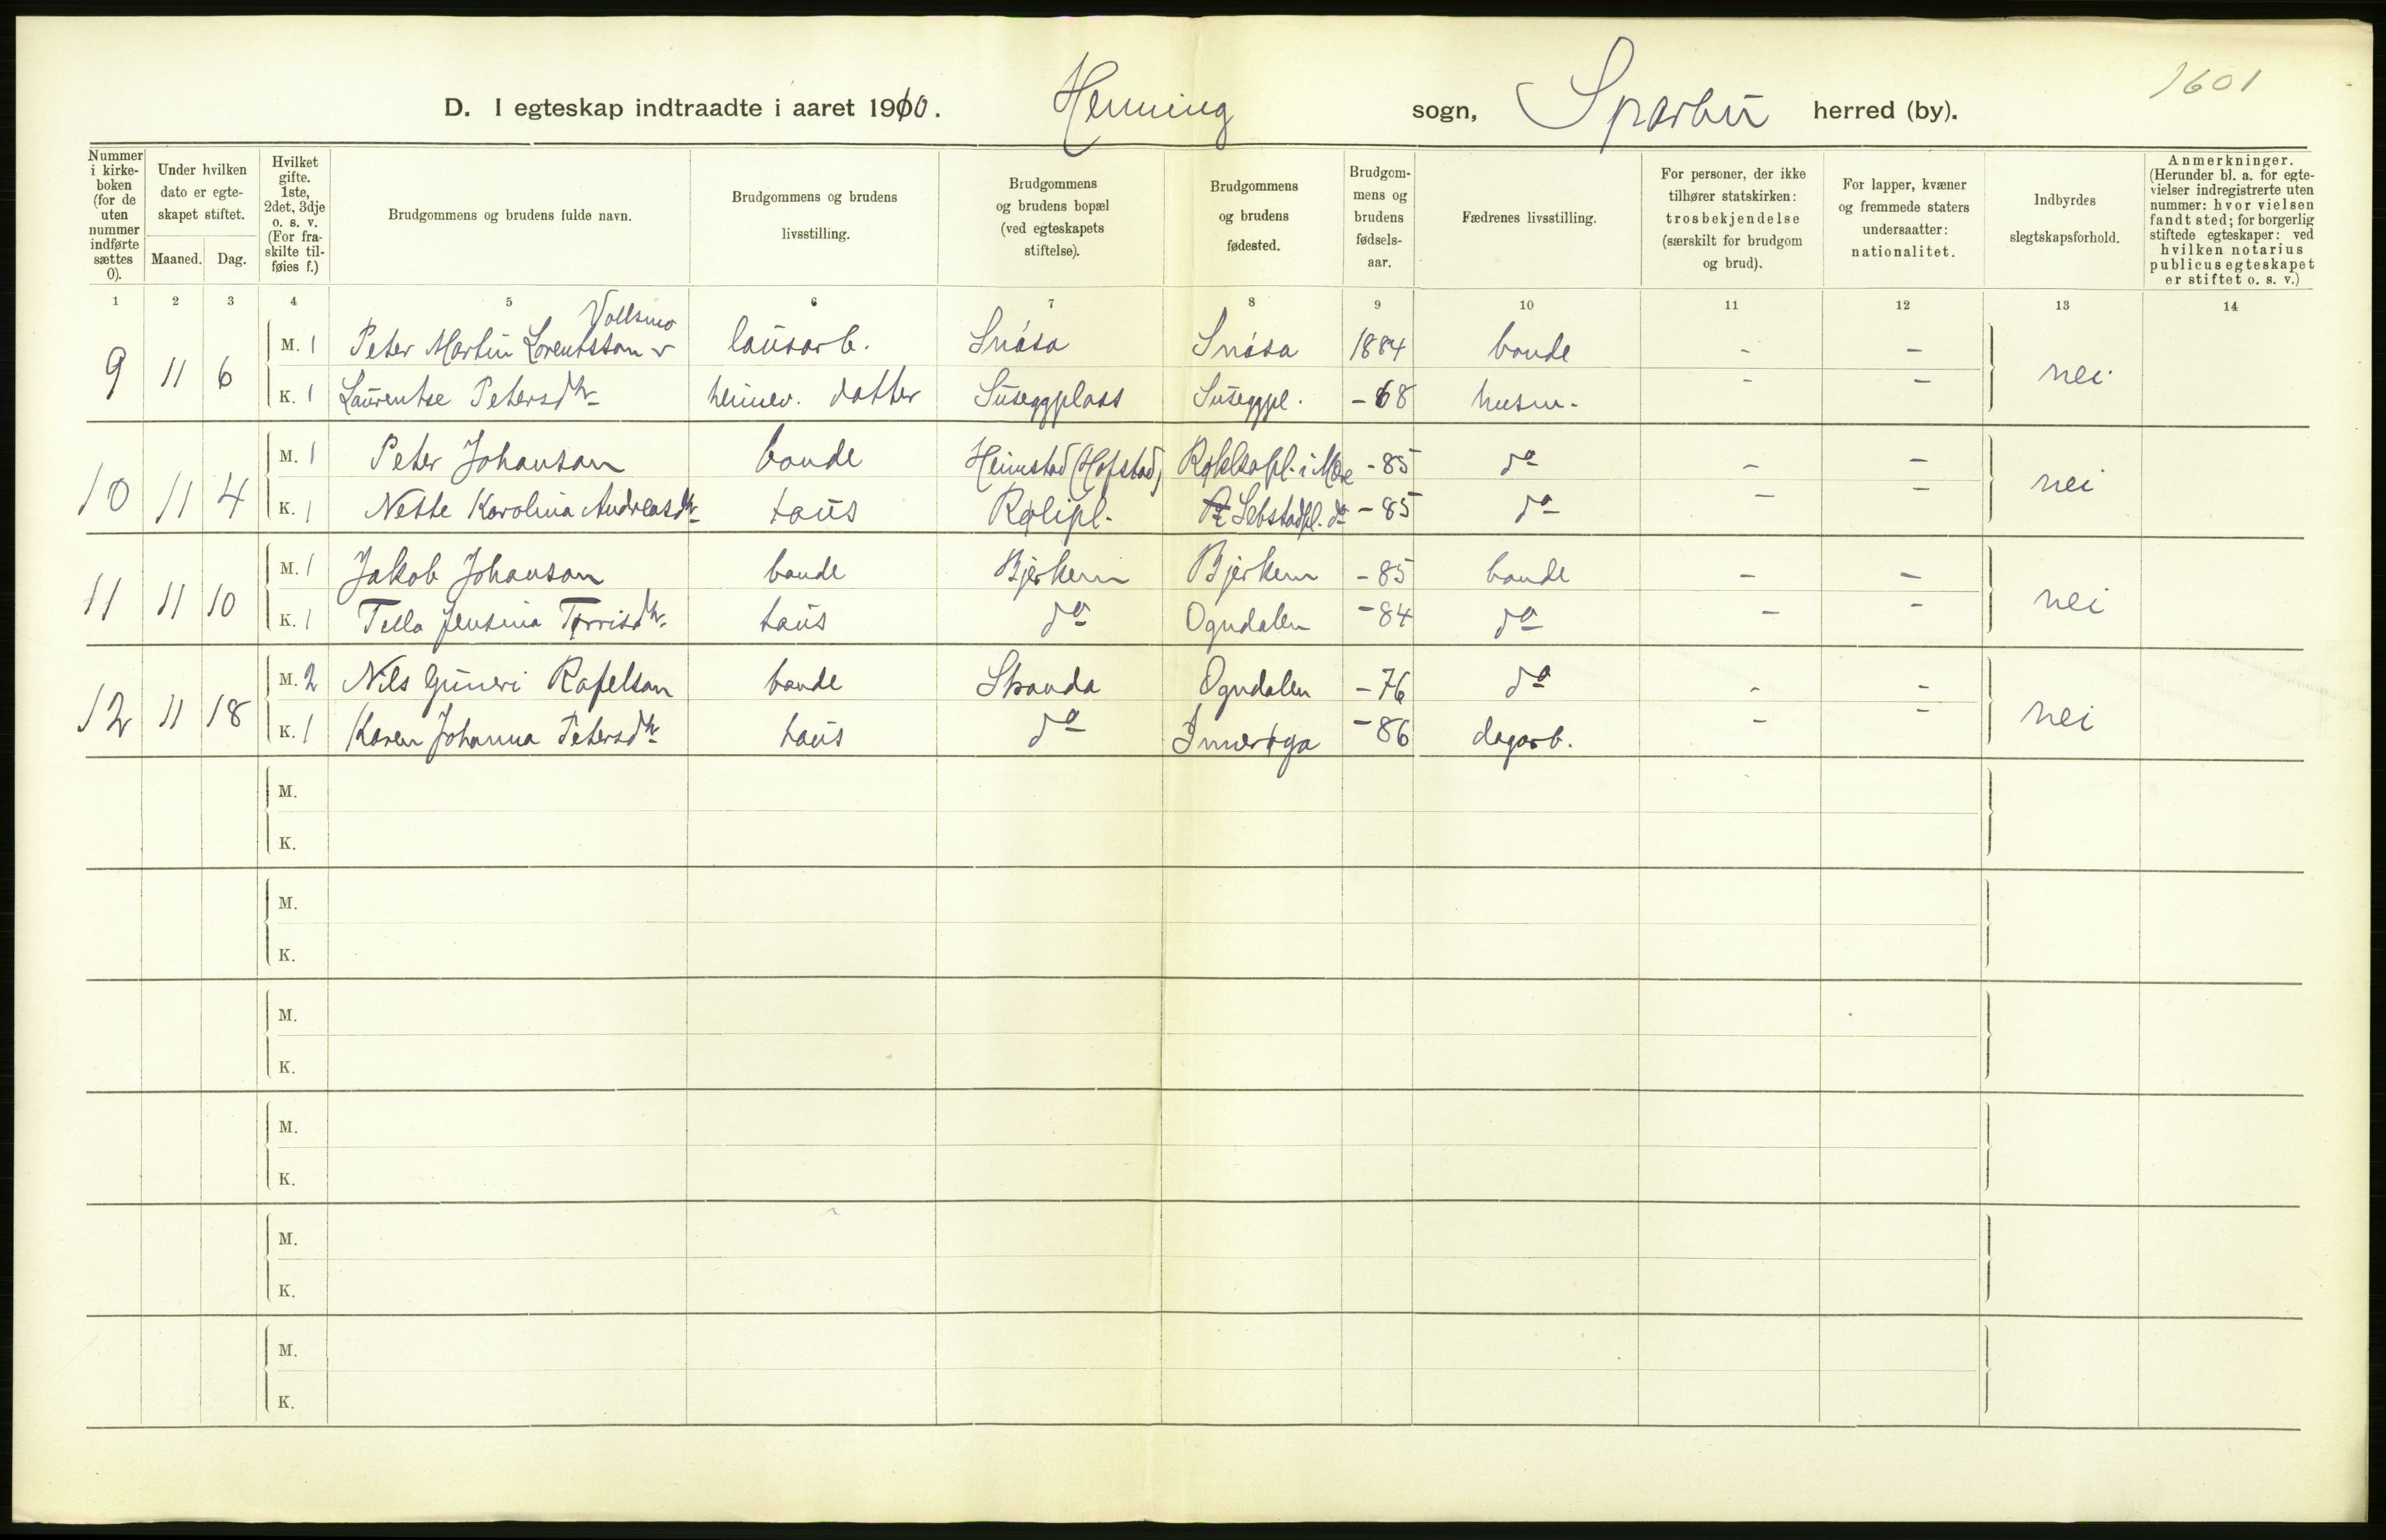 1601
D. I egteskap indtraadte i aaret 1910. Henning sogn, Sparbu herred (by).
Nummer i kirke-boken (for de uten nummer indførte sættes 0).
Under hvilken dato er egte-skapet stiftet.
Maaned. Dag.
Hvilket gifte. 1ste, 2det, 3dje o. s. v. (For fra-skilte til-føies f.)
Brudgommens og brudens fulde navn.
Brudgommens og brudens livsstilling.
Brudgommens og brudens bopæl (ved egteskapets stiftelse).
Brudgommens og brudens fødested.
Brudgom-mens og brudens fødsels-aar.
Fædrenes livsstilling.
For personer, der ikke tilhører statskirken: trosbekjendelse (særskilt for brudgom og brud).
For lapper, kvæner og fremmede staters undersaatter: nationalitet.
Indbyrdes slegtskapsforhold.
Anmerkninger. (Herunder bl. a. for egte-vielser indregistrerte uten nummer: hvor vielsen fandt sted; for borgerlig stiftede egteskaper: ved hvilken notarius publicus egteskapet er stiftet o. s. v.)
1 2 3 4 5 6 7 8 9 10 11 12 13 14
Vollsmo
9 11 6 M. 1 Peter Martin Lorentsson v lausarb. Snåsa Snåsa 1884 bonde - - nei
K. 1 Laurentse Petersdtr heimev. datter Suseggplass Suseggpl. -68 husm. - -
10 11 4 M. 1 Peter Johanson bonde Heimstad (Hofstad) i Mære -85 do - - nei
K. 1 Nette Karolina Andreasdtr taus Rolipl. do -85 do - -
11 11 10 M. 1 Jakob Johanson bonde Bjerkem Bjerkem -85 bonde - - nei
K. 1 Tella Jensina Torrisdtr. taus do Ogndalen -84 do - -
12 11 18 M. 2 Nils Guneri Rafelson bonde Stranda Ogndalen -76 do - - nei
K. 1 Karen Johanna Petersdtr taus do Inderøya -86 dagarb. - -
M.
K.
M.
K.
M.
K.
M.
K.
M.
K.
M.
K.